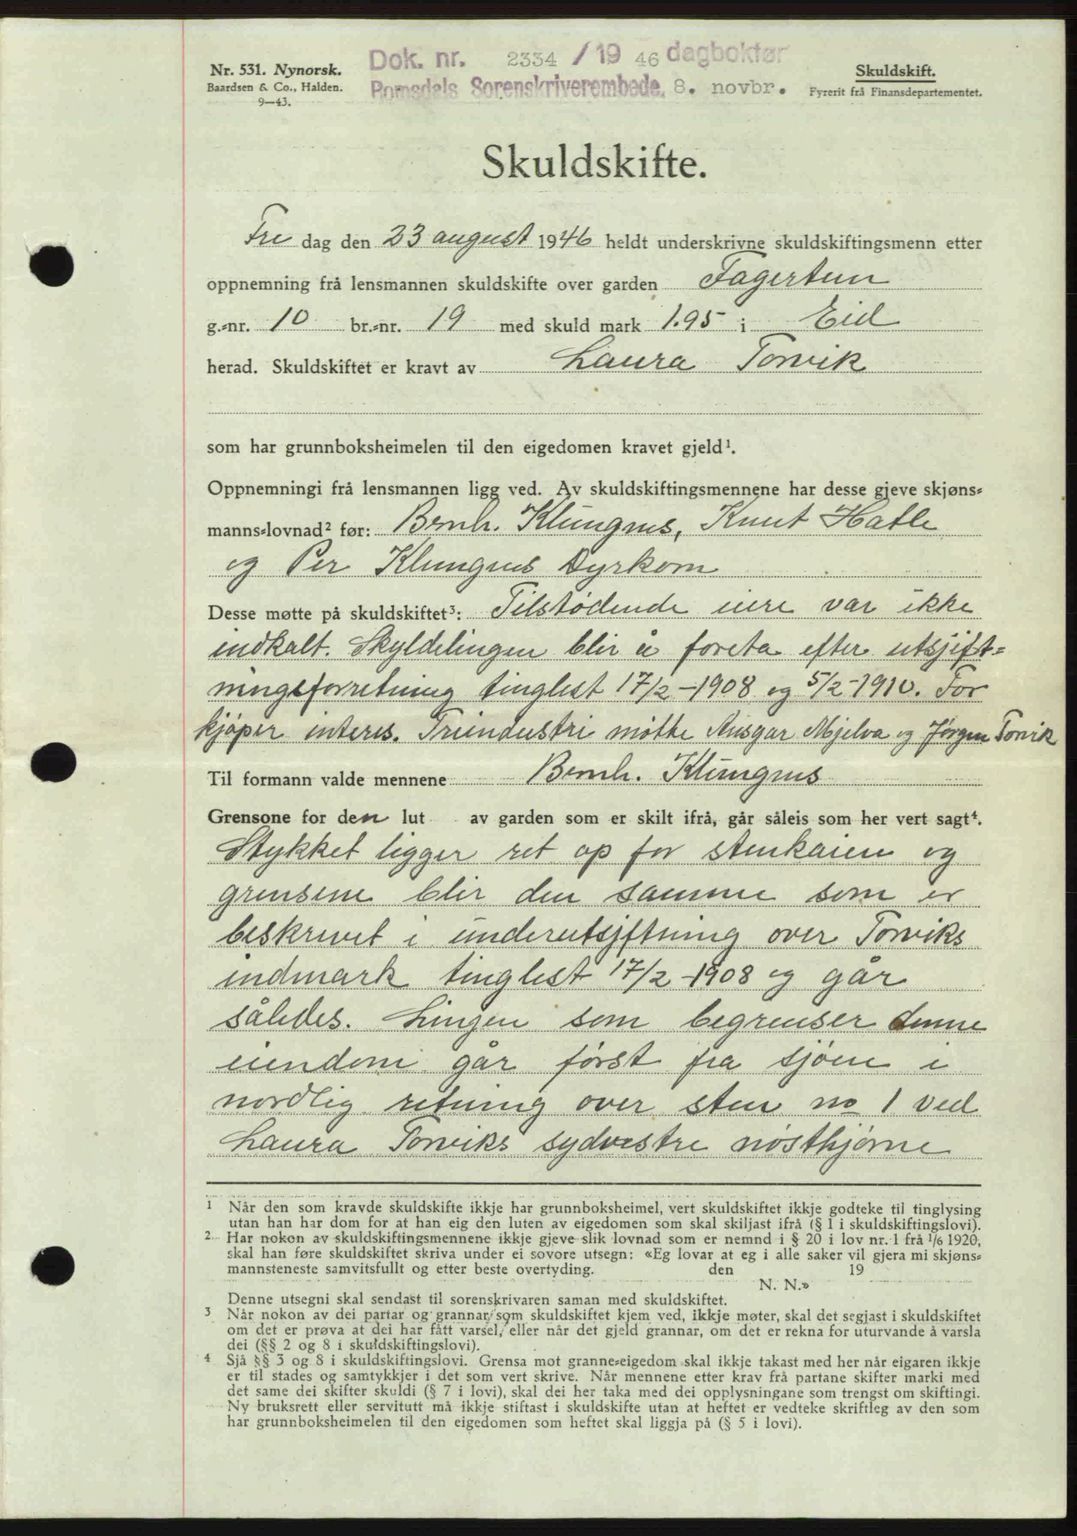 Nr. 531. Nynorsk.
Baardsen & Co., Halden.
9—43.
Dok. nr. 2334 / 19 46 dagboktør
Romsdals Sorenskriverembede, 8. novbr.
Skuldskift.
Fyrerit frå Finansdepartementet.
Skuldskifte.
Fre dag den 23 august 1946 heldt underskrivne skuldskiftingsmenn etter
oppnemning frå lensmannen skuldskifte over garden Fagertun
g.-nr. 10 br.-nr. 19 med skuld mark 1.95 i Eid
herad. Skuldskiftet er kravt av Laura Torvik
som har grunnboksheimelen til den eigedomen kravet gjeld¹.
Oppnemningi frå lensmannen ligg ved. Av skuldskiftingsmennene har desse gjeve skjøns-
manns-lovnad² før: Bernh. Klungnes, Knut Hatle
og Per Klungnes Dyrkorn
Desse møtte på skuldskiftet³: Tilstødende eiere var ikke
indkalt. Skyldelingen blir å foreta efter utsjift-
ningsforretning tinglest 17/2-1908 og 5/2-1910. For
kjøper interes. Treindustri møtte Ansgar Mjelva og Jørgen Torvik
Til formann valde mennene Bernh. Klungnes
Grensone for den lut av garden som er skilt ifrå, går såleis som her vert sagt⁴.
Stykket ligger ret op for stenkaien og
grensene blir den samme som er
beskrevet i underutsjiftning over Torviks
indmark tinglest 17/2-1908 og går
således. Lingen som begrenser denne
eiendom går først fra sjøen i
nordlig retning over sten no 1 ved
Laura Torviks sydvestre nøsthjørne
¹ Når den som kravde skuldskifte ikkje har grunnboksheimel, vert skuldskiftet ikkje godteke til tinglysing
utan han har dom for at han eig den luten av eigedomen som skal skiljast ifrå (§ 1 i skuldskiftingslovi).
² Har nokon av skuldskiftingsmennene ikkje gjeve slik lovnad som er nemnd i § 20 i lov nr. 1 frå 1/6 1920,
skal han føre skuldskiftet skriva under ei sovore utsegn: «Eg lovar at eg i alle saker vil gjera mi skjøns-
mannsteneste samvitsfullt og etter beste overtyding. den 19
N. N.»
Denne utsegni skal sendast til sorenskrivaren saman med skuldskiftet.
³ Når nokon av dei partar og grannar som skuldskiftet kjem ved, ikkje møter, skal det segjast i skuldskiftet
om det er prøva at dei har fått varsel, eller når det gjeld grannar, om det er rekna for uturvande å varsla
dei (§§ 2 og 8 i skuldskiftingslovi).
⁴ Sjå §§ 3 og 8 i skuldskiftingslovi. Grensa mot granne-eigedom skal ikkje takast med her når eigaren ikkje
er til stades og samtykkjer i det som vert skrive. Når mennene etter krav frå partane skifter marki med
det same dei skifter skuldi (§ 7 i lovi), skal dei her taka med dei opplysningane som trengst om skiftingi.
Ny bruksrett eller servitutt må ikkje stiftast i skuldskifte utan at heftet er vedteke skriftleg av den som
har grunnboksheimelen til den eigedomen som heftet skal liggja på (§ 5 i lovi).